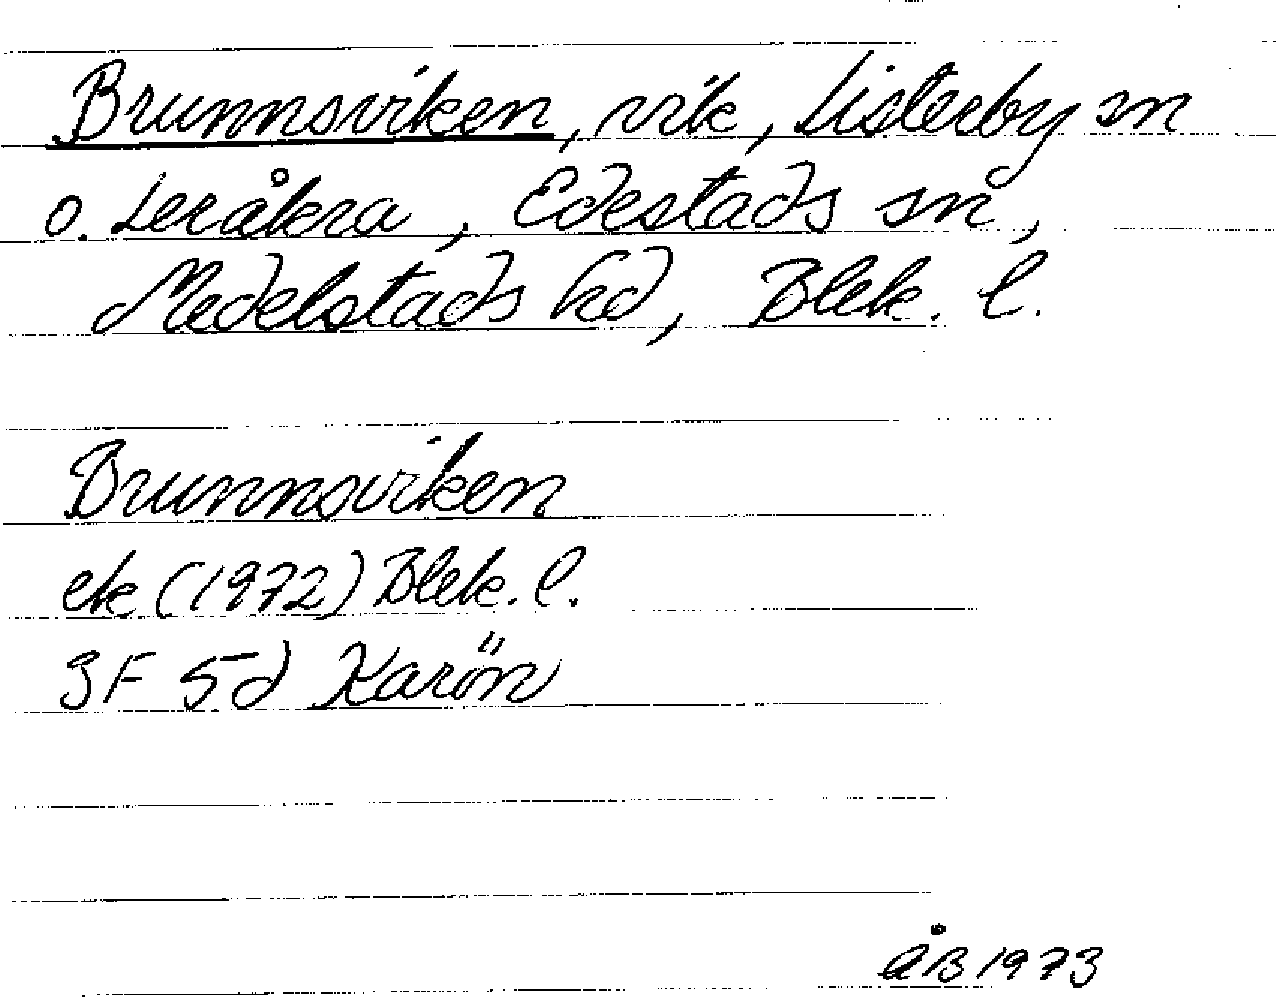 Brunnsviken, vik, Listerby sn
o. Leråkra, Edestads sn,
Medelstads hd, Blek. l.
Brunnsviken
ek (1972) Blek. l.
3F 5d Karön
ÅB 1973